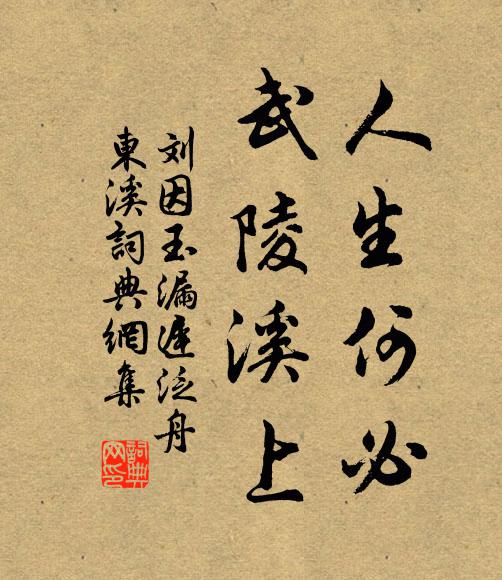 人生何必
武陵溪上
刘因玉漏遲泛舟
東溪詞典網集
詞典网印